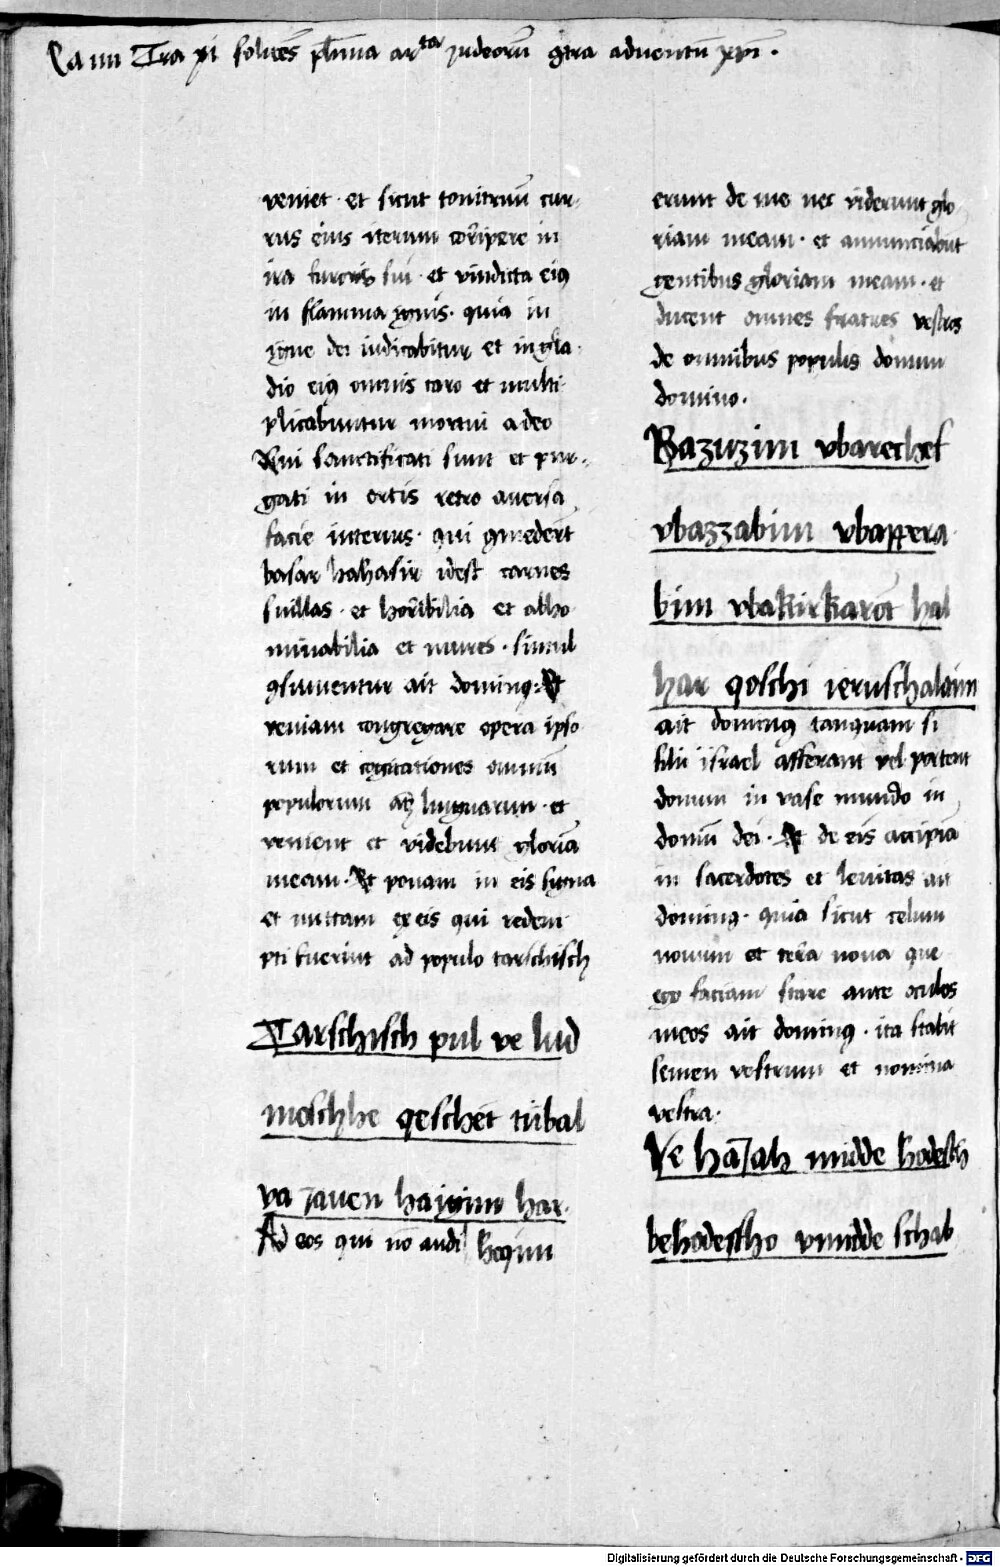 solue͞s pl͞ima ar^ta Judeoru͞ 9tra aduentu͞ xp͞i .
veniet · et sicut tonitruu͞ cur-
rus eius iterum cor͞ipere in
ira furoris sui · et vindicta ei9
in flamma ignis · quia in
igne dei iudicabitur et in gla-
dio ei9 omnis caro et multi-
plicabuntur mortui a deo
Qui sanctificati sunt et pur-
gati in ortis retro auersa
facie interius · qui 9mede͞rt
basar hahasir idest carnes
suillas · et hor͞ibilia et abho-
minabilia et mures · simul
9sumentur ait domin9 : Et
veniam congregare opera ipso-
rum et cogitationes omniu͞
populorum atq3 linguarum · et
venient et videbunt gloria͞
meam · Et ponam in eis signa
et mittam ex eis qui redem-
pti fuerint ad populo tarschisch
Tarschisch pul ve lud
moschhe qeschet tubal
va Jauen haiyim har-
Ad eos qui no͞ audi hoqim
erunt de me nec viderunt glo-
riam meam · et annunciabu͞t
gentibus gloriam meam · et
ducent omnes fratres vestros
de omnibus populis donum
domino .
Bazuzim vbarechef
vbazzabim vbappera
bim vbakirkarot hal
har qoschi ieruschalaim
ait domin9 tanquam si
filii israel afferant vel portent
donum in vase mundo in
domu͞ dei · Et de eis accipia͞
in sacerdotes et leuitas ait
domin9 · quia sicut celum
nouum et ter͞a noua que
ego faciam stare ante oculos
meos ait domin9 · ita stabit
semen vestrum et nomina
vestra ·
Ve haJah midde hodesch
behodescho vmidde schab
Digitalisierung gefördert durch die Deutsche Forschungsgemeinschaft - DFG